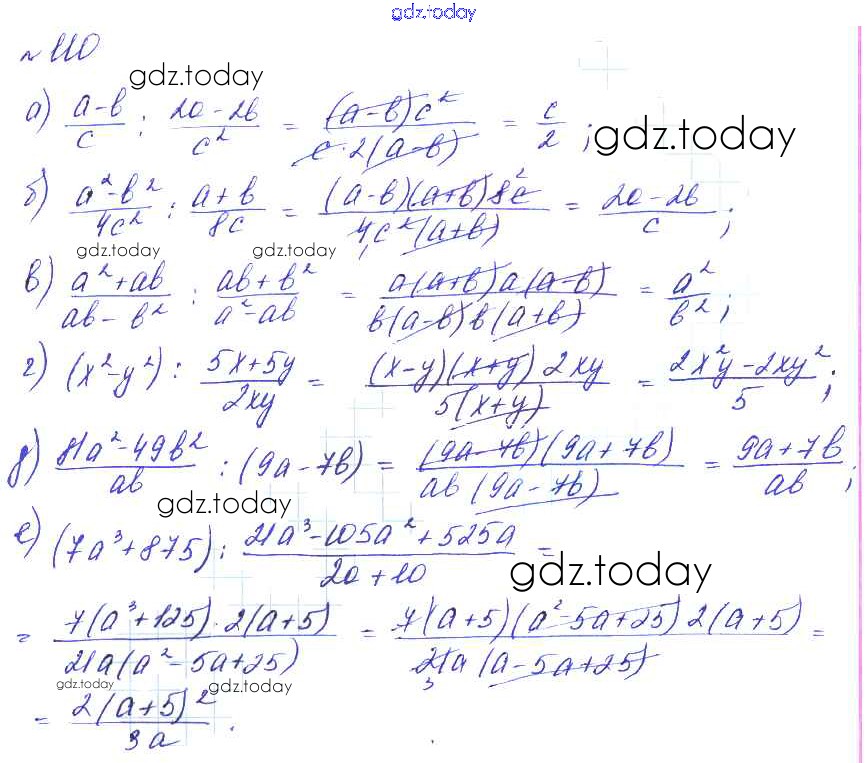 gdz.today
№110
gdz.today
а) (a-b)/c : (2a-2b)/c² = ((a-b)c²)/(c·2(a-b)) = c/2; gdz.today
б) (a²-b²)/4c² : (a+b)/8c = ((a-b)(a+b)8c 2)/(4c²(a+b)) = (2a-2b)/c;
gdz.today gdz.today
в) (a²+ab)/(ab-b²) : (ab+b²)/(a²-ab) = (a(a+b)a(a-b))/(b(a-b)b(a+b)) = a²/b²;
г) (x²-y²) : (5x+5y)/2xy = ((x-y)(x+y)2xy)/(5(x+y)) = (2x²y-2xy²)/5;
д) (81a²-49b²)/ab : (9a-7b) = ((9a-7b)(9a+7b))/(ab(9a-7b)) = (9a+7b)/ab;
gdz.today
е) (7a³+875) : (21a³-105a²+525a)/(2a+10) =
gdz.today
= (7(a³+125)·2(a+5))/(21a(a²-5a+25)) = (7(a+5)(a²-5a+25)2(a+5))/(21a(a-5a+25) 3) =
gdz.today gdz.today
= (2(a+5)²)/3a.